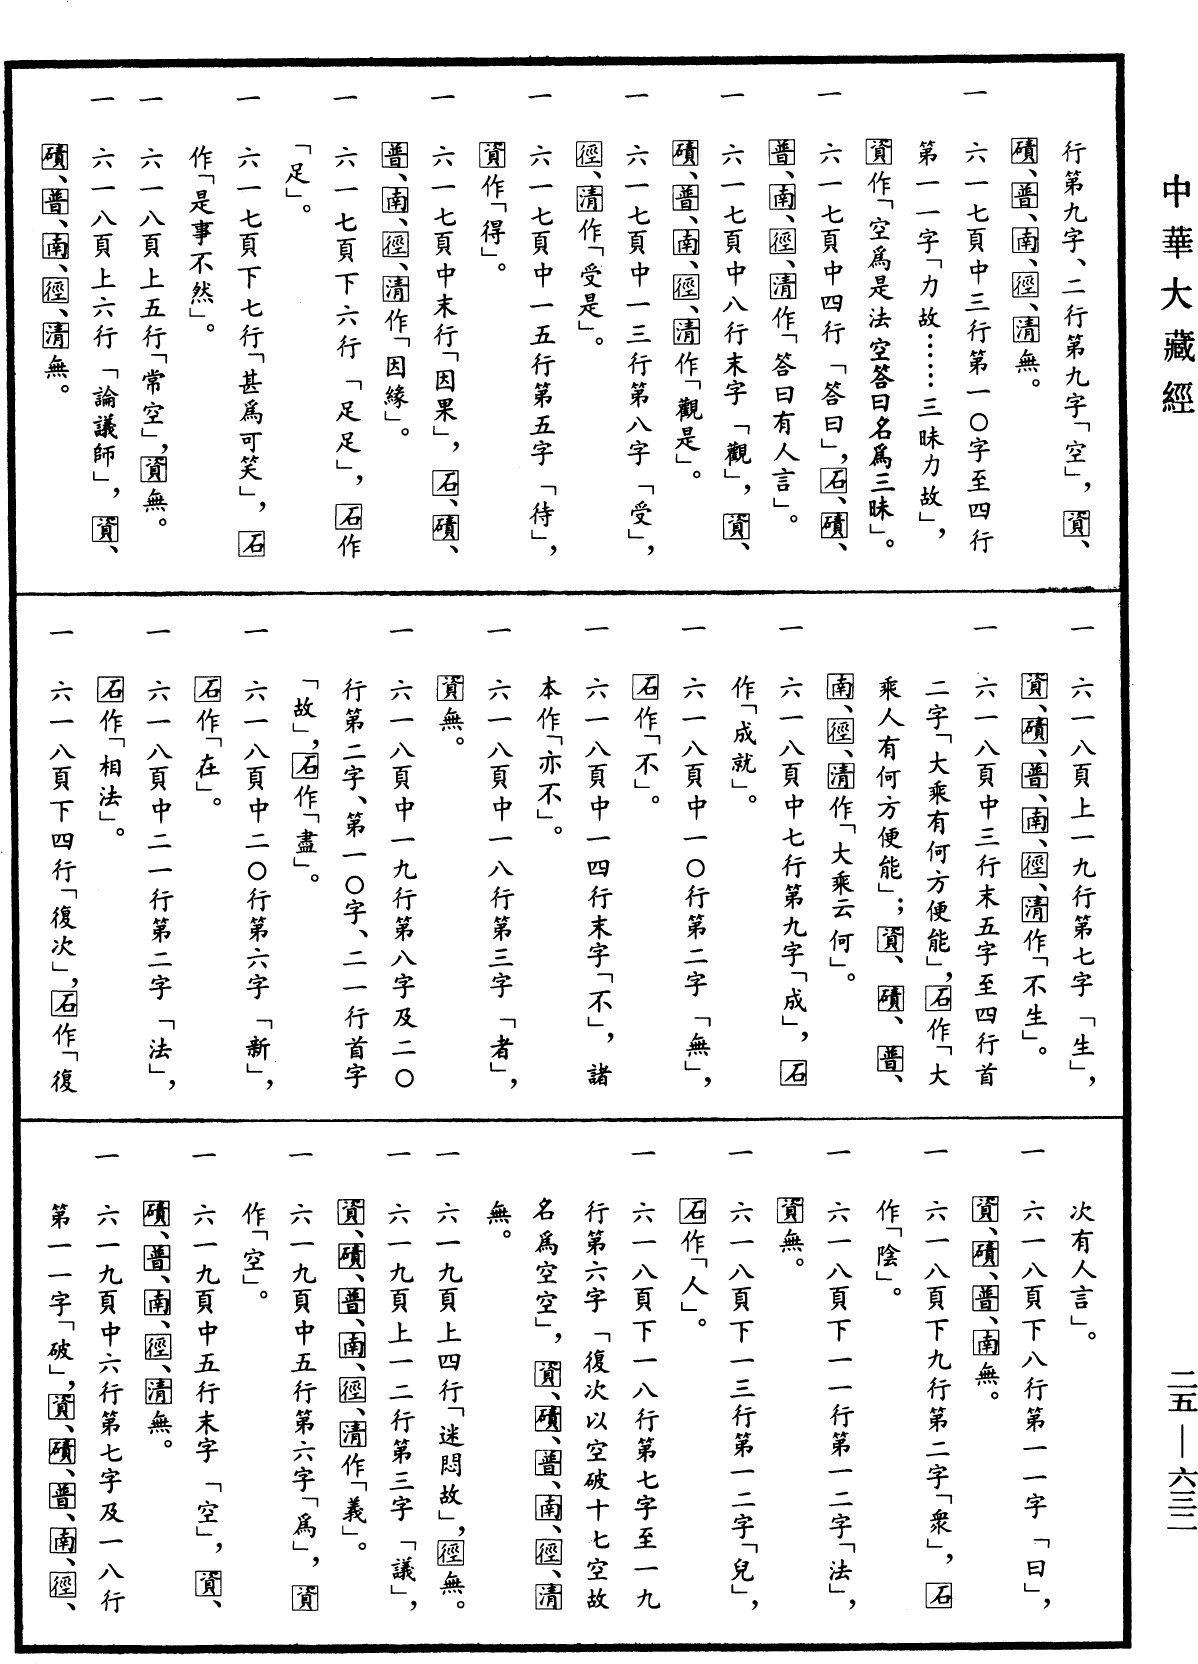 中華大藏經
行第九字、二行第九字「空」，資、
磧、普、南、徑、清無。
一 六一七頁中三行第一〇字至四行
第一一字「力故……三昧力故」，
資作「空爲是法空答曰名爲三昧」。
一 六一七頁中四行「答曰」，石、磧、
普、南、徑、清作「答曰有人言」。
一 六一七頁中八行末字「觀」，資、
磧、普、南、徑、清作「觀是」。
一 六一七頁中一三行第八字「受」，
徑、清作「受是」。
一 六一七頁中一五行第五字「待」，
資作「得」。
一 六一七頁中末行「因果」，石、磧、
普、南、徑、清作「因緣」。
一 六一七頁下六行「足足」，石作
「足」。
一 六一七頁下七行「甚爲可笑」，石
作「是事不然」。
一 六一八頁上五行「常空」，資無。
一 六一八頁上六行「論議師」，資、
磧、普、南、徑、清無。
一 六一八頁上一九行第七字「生」，
資、磧、普、南、徑、清作「不生」。
一 六一八頁中三行末五字至四行首
二字「大乘有何方便能」，石作「大
乘人有何方便能」；資、磧、普、
南、徑、清作「大乘云何」。
一 六一八頁中七行第九字「成」，石
作「成就」。
一 六一八頁中一〇行第二字「無」，
石作「不」。
一 六一八頁中一四行末字「不」，諸
本作「亦不」。
一 六一八頁中一八行第三字「者」，
資無。
一 六一八頁中一九行第八字及二〇
行第二字、第一〇字、二一行首字
「故」，石作「盡」。
一 六一八頁中二〇行第六字「新」，
石作「在」。
一 六一八頁中二一行第二字「法」，
石作「相法」。
一 六一八頁下四行「復次」，石作「復
次有人言」。
一 六一八頁下八行第一一字「曰」，
資、磧、普、南無。
一 六一八頁下九行第二字「衆」，石
作「陰」。
一 六一八頁下一一行第一二字「法」，
資無。
一 六一八頁下一三行第一二字「兒」，
石作「人」。
一 六一八頁下一八行第七字至一九
行第六字「復次以空破十七空故
名爲空空」，資、磧、普、南、徑、清
無。
一 六一九頁上四行「迷悶故」，徑無。
一 六一九頁上一二行第三字「議」，
資、磧、普、南、徑、清作「義」。
一 六一九頁中五行第六字「爲」，資
作「空」。
一 六一九頁中五行末字「空」，資、
磧、普、南、徑、清無。
一 六一九頁中六行第七字及一八行
第一一字「破」，資、磧、普、南、徑、
二五—六三二